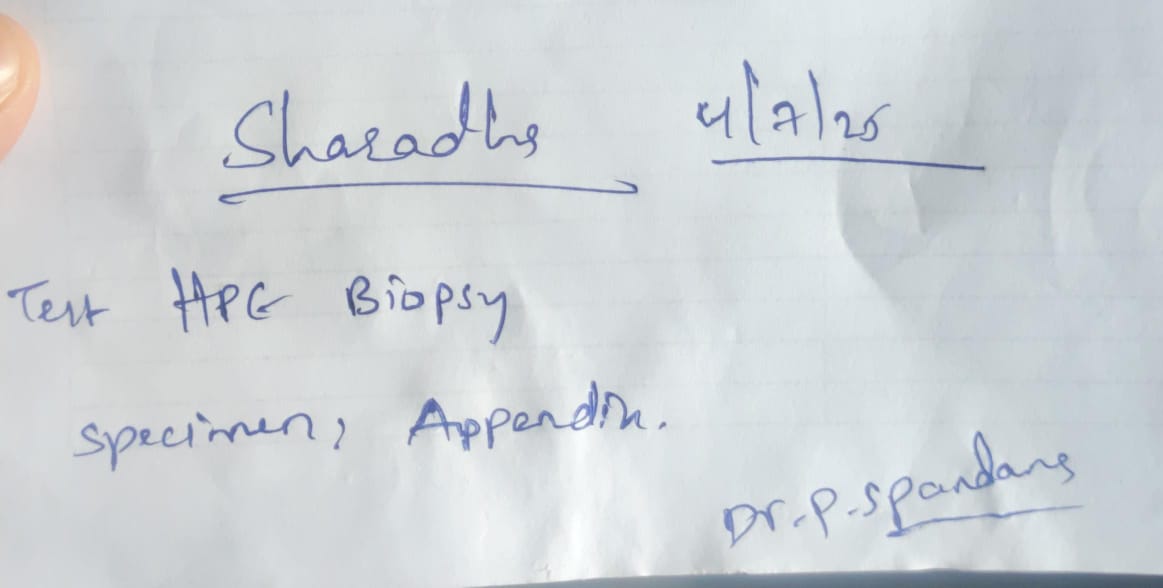 Sharadha 4/7/25
Test HPE Biopsy
specimen; Appendix.
Dr. P. Spandana